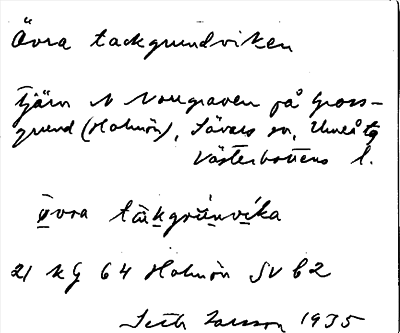 Övra tackgrundviken
Tjärn N Norrgraven på Gross-
grund (Holmön), Sävars sn, Umeå tg
Västerbottens l.
övra takgrunvika
21 Kg 64 Holmön SV b2
Seth Larsson 1935